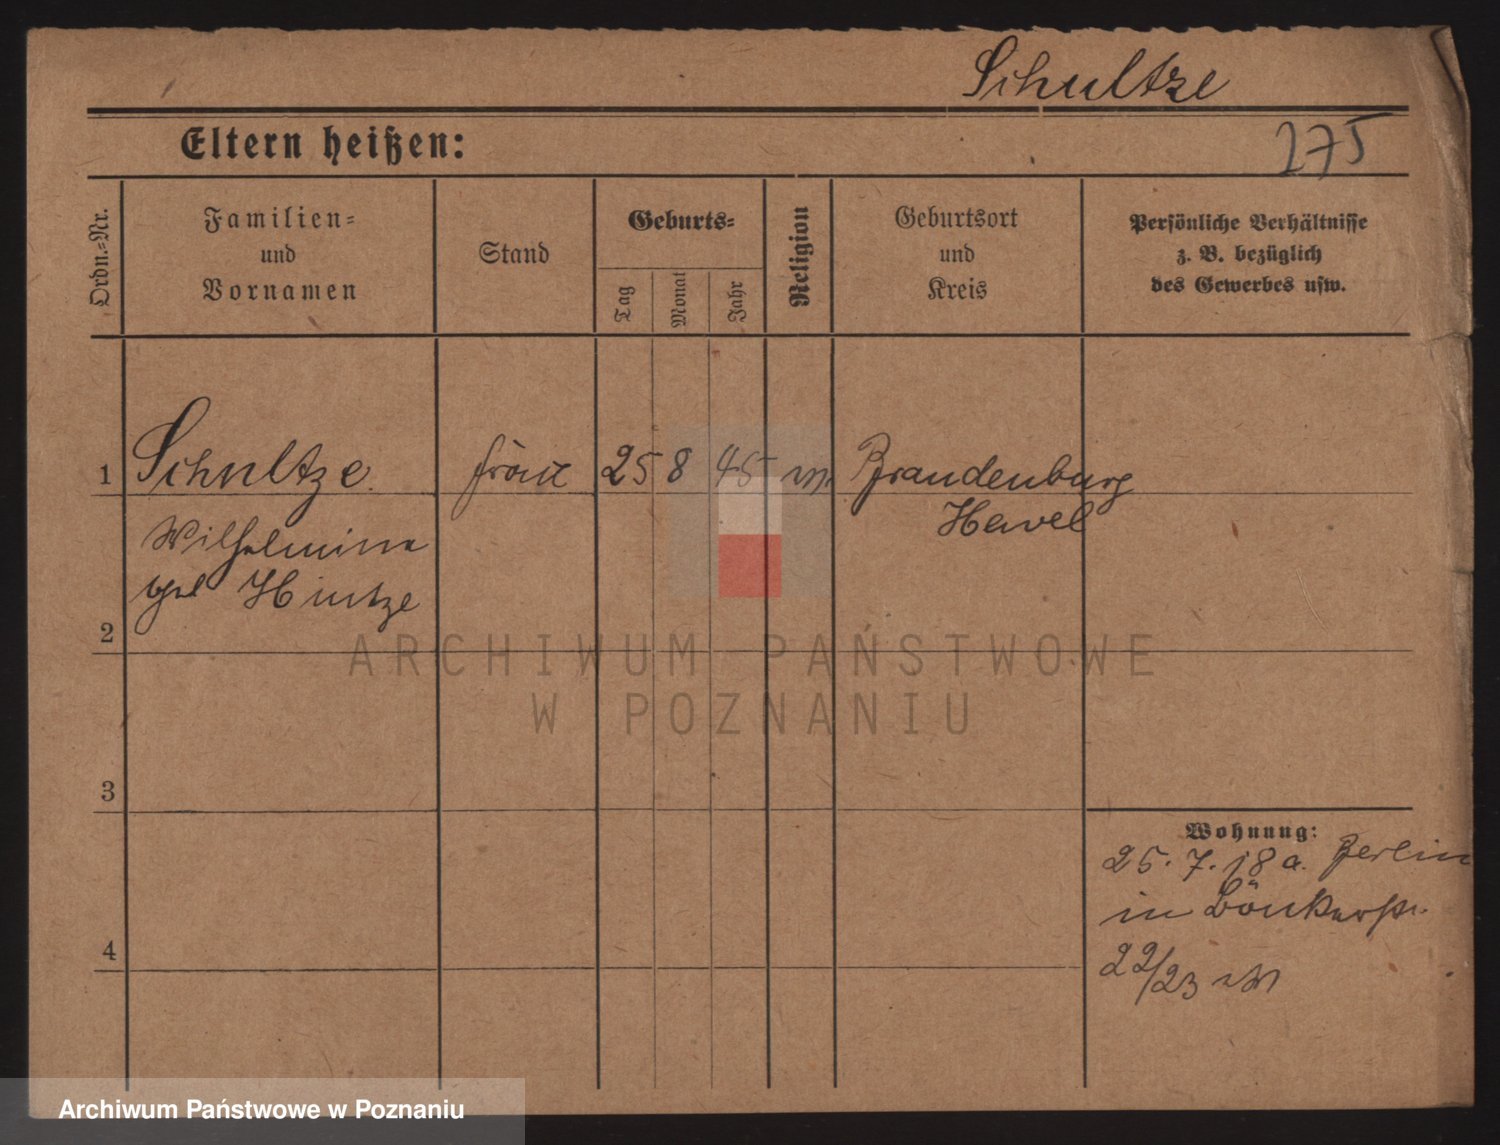 Schultze
Eltern heißen:
275
Ordn.-Nr.
Familien-
und
Vornamen
Stand
Geburts-
Tag
Monat
Jahr
Religion
Geburtsort
und
Kreis
Persönliche Verhältnisse
z. B. bezüglich
des Gewerbes usw.
1 Schultze frau 25 8 45 Brandenburg
Havel
Wilhelmine
geb Hintze
2
ARCHIWUM PAŃSTWOWE
W POZNANIU
3
Wohnung:
25. 7. 18 a. Berlin
in
22/23
4
Archiwum Państwowe w Poznaniu